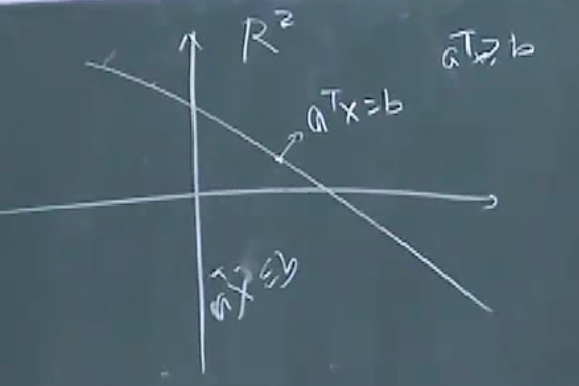 R²
aᵀx ≥ b
aᵀx = b
aᵀx ≤ b